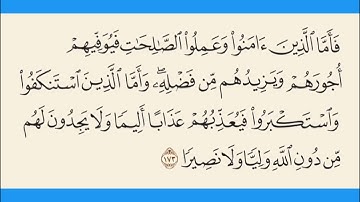 فَأَمَّا ٱلَّذِينَ ءَامَنُوا۟ وَعَمِلُوا۟ ٱلصَّـٰلِحَـٰتِ فَيُوَفِّيهِمْ
أُجُورَهُمْ وَيَزِيدُهُم مِّن فَضْلِهِۦۖ وَأَمَّا ٱلَّذِينَ ٱسْتَنكَفُوا۟
وَٱسْتَكْبَرُوا۟ فَيُعَذِّبُهُمْ عَذَابًا أَلِيمًا وَلَا يَجِدُونَ لَهُم
مِّن دُونِ ٱللَّهِ وَلِيًّا وَلَا نَصِيرًا ١٧٣